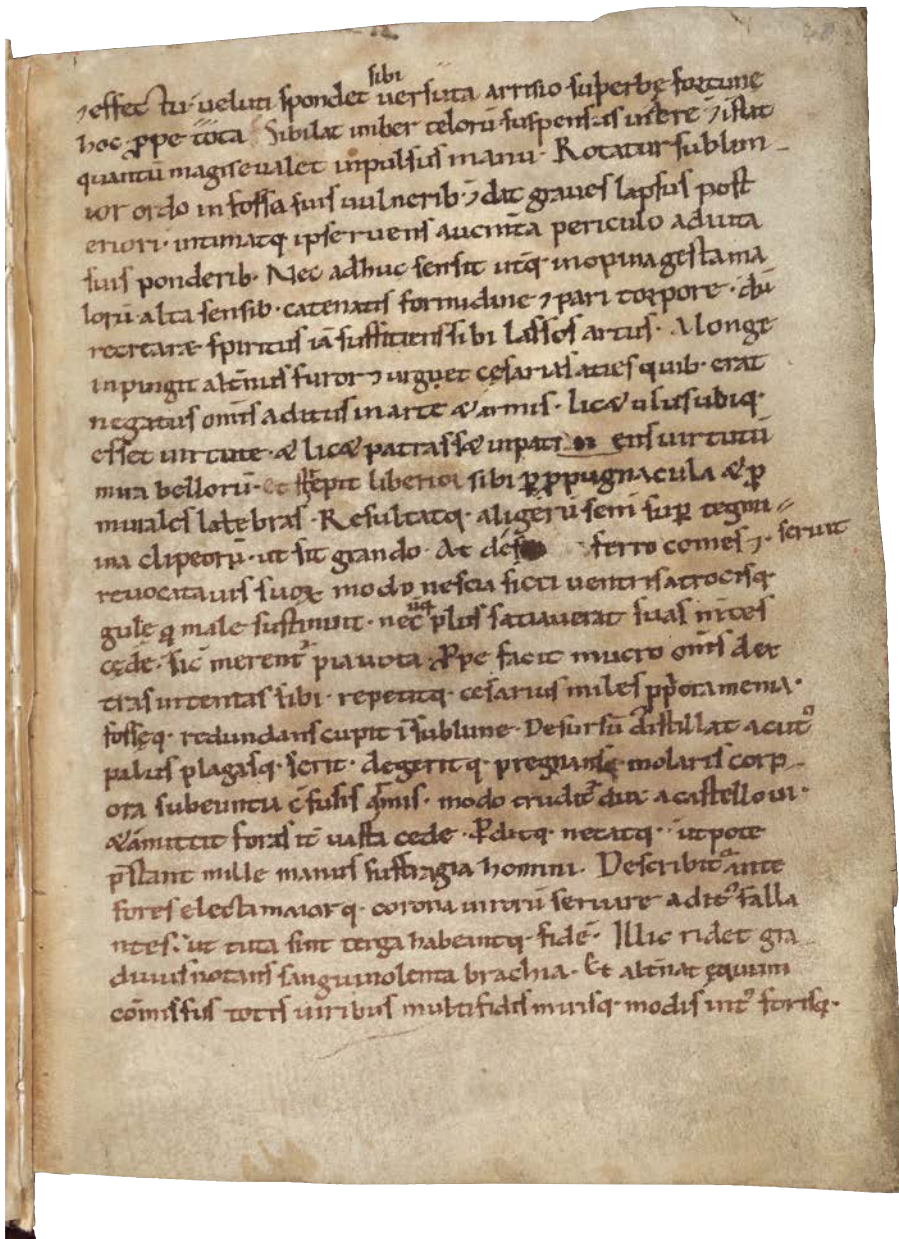 ⁊ effectu · ueluti spondet sibi uersuta arrisio superbę fortunę
hoc ꝓpe tota Sibilat imber telorū suspensus in ętrē ⁊ istic
quantū magis eualet inpulsus manu · Rotatur sublim
ior ordo in fossa suis uulnerib · ⁊ dat graues lapsus post
eriori · intimatq ipse ruens aucmta periculo aduita
suis ponderib · Nec adhuc sensit utq inopina gesta ma
lorū alta sensib · catenatis formidine ⁊ pari torpore · dū
recreare spiritus iā sufficiens sibi lassos artus · A longe
inpingit altn̄us furor ⁊ urguet cęsarias acies quib · erat
negatus om̄is aditus in arte & armis · lic& ulus ubiq ·
esset uirtute · & lic& patrass& inpati ens uirtutū
mira bellorū · et cepit liberior sibi ꝑ ꝓpugnacula & ꝑ
murales latebras · Resultatq · aligerū semi suꝑ tegmi
na clipeorū · ut sit grando · At ferro comes ⁊ · seruit
reuocita uis suọ modo nescia sicci uentris atrocisq
gulę q male sustinuit · nec plus satiauerat suas mites
cęde · sic̄ merent᷒ pia uota ꝓpe facit mucro om̄is dex
tras intentas sibi · repetitq · cesarius miles ꝓpota menia ·
fossęq · redundans cupit ī sublime · Desursū distillat acut᷒
pilus plagasq · serit · degeritq · pregnansq molaris corp
ora subeuntia c̄ fusis armis · modo trudit̄ dux a castello ui ·
& amittit foras it̄ uasta cede · ꝑditq · necatq · utpote
p̄stant mille manus suffragia homini · Describit᷒ ante
fores electa maiorq · corona uirorū seruare adit᷒ falla
ntes · ut tuta sint terga habeantq · fidē · Illic ridet gra
diuus notans sanguinolenta brachia · Et altn̄at ęquum
cōmissus totis uiribus multifidis mirisq · modis int᷒ forisq ·